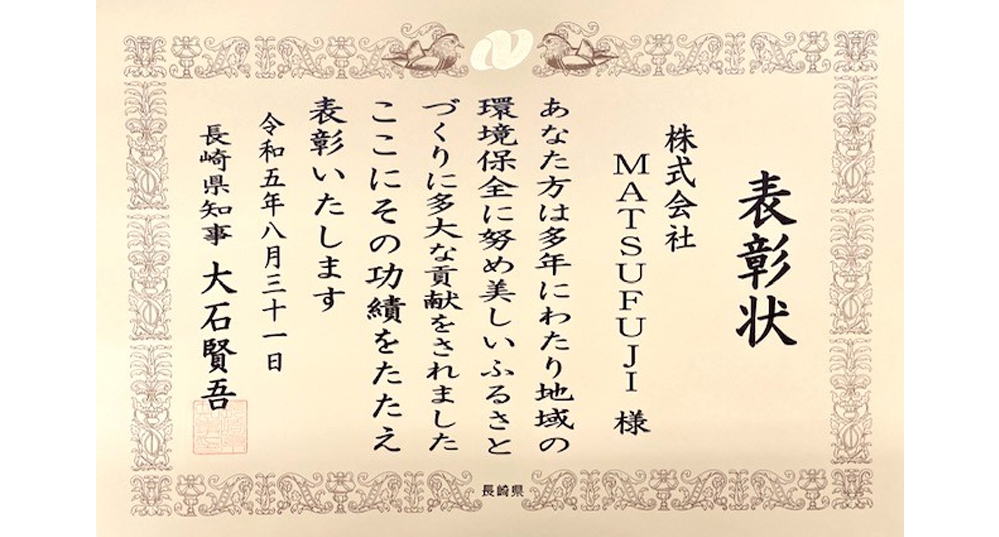 表彰状
株式会社
MATSUFUJI 様
あなた方は多年にわたり地域の
環境保全に努め美しいふるさと
づくりに多大な貢献をされました
ここにその功績をたたえ
表彰いたします
令和五年八月三十一日
長崎県知事 大石賢吾
長崎県